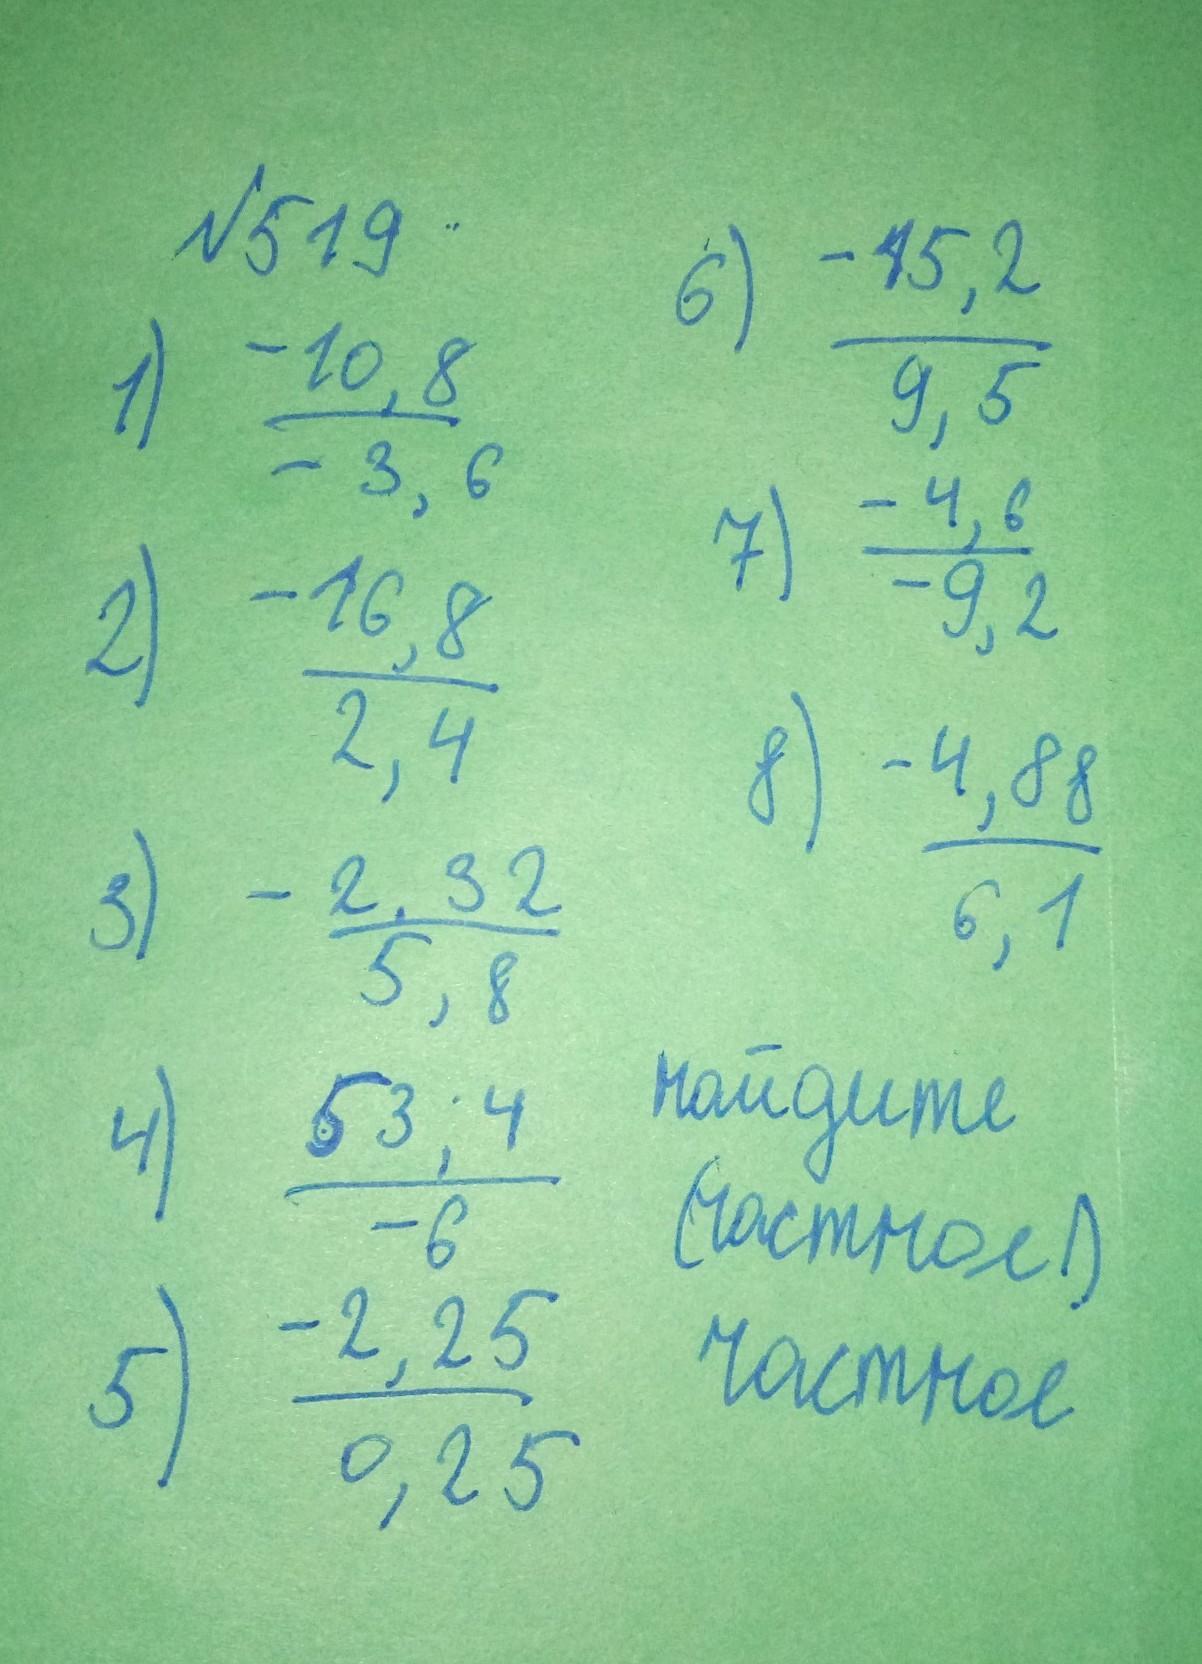 №519
1) -10,8
-3,6
2) -16,8
2,4
3) - 2,32
5,8
4) 53,4
-6
5) -2,25
0,25
6) -15,2
9,5
7) -4,6
-9,2
8) -4,88
6,1
найдите
(частное!)
частное